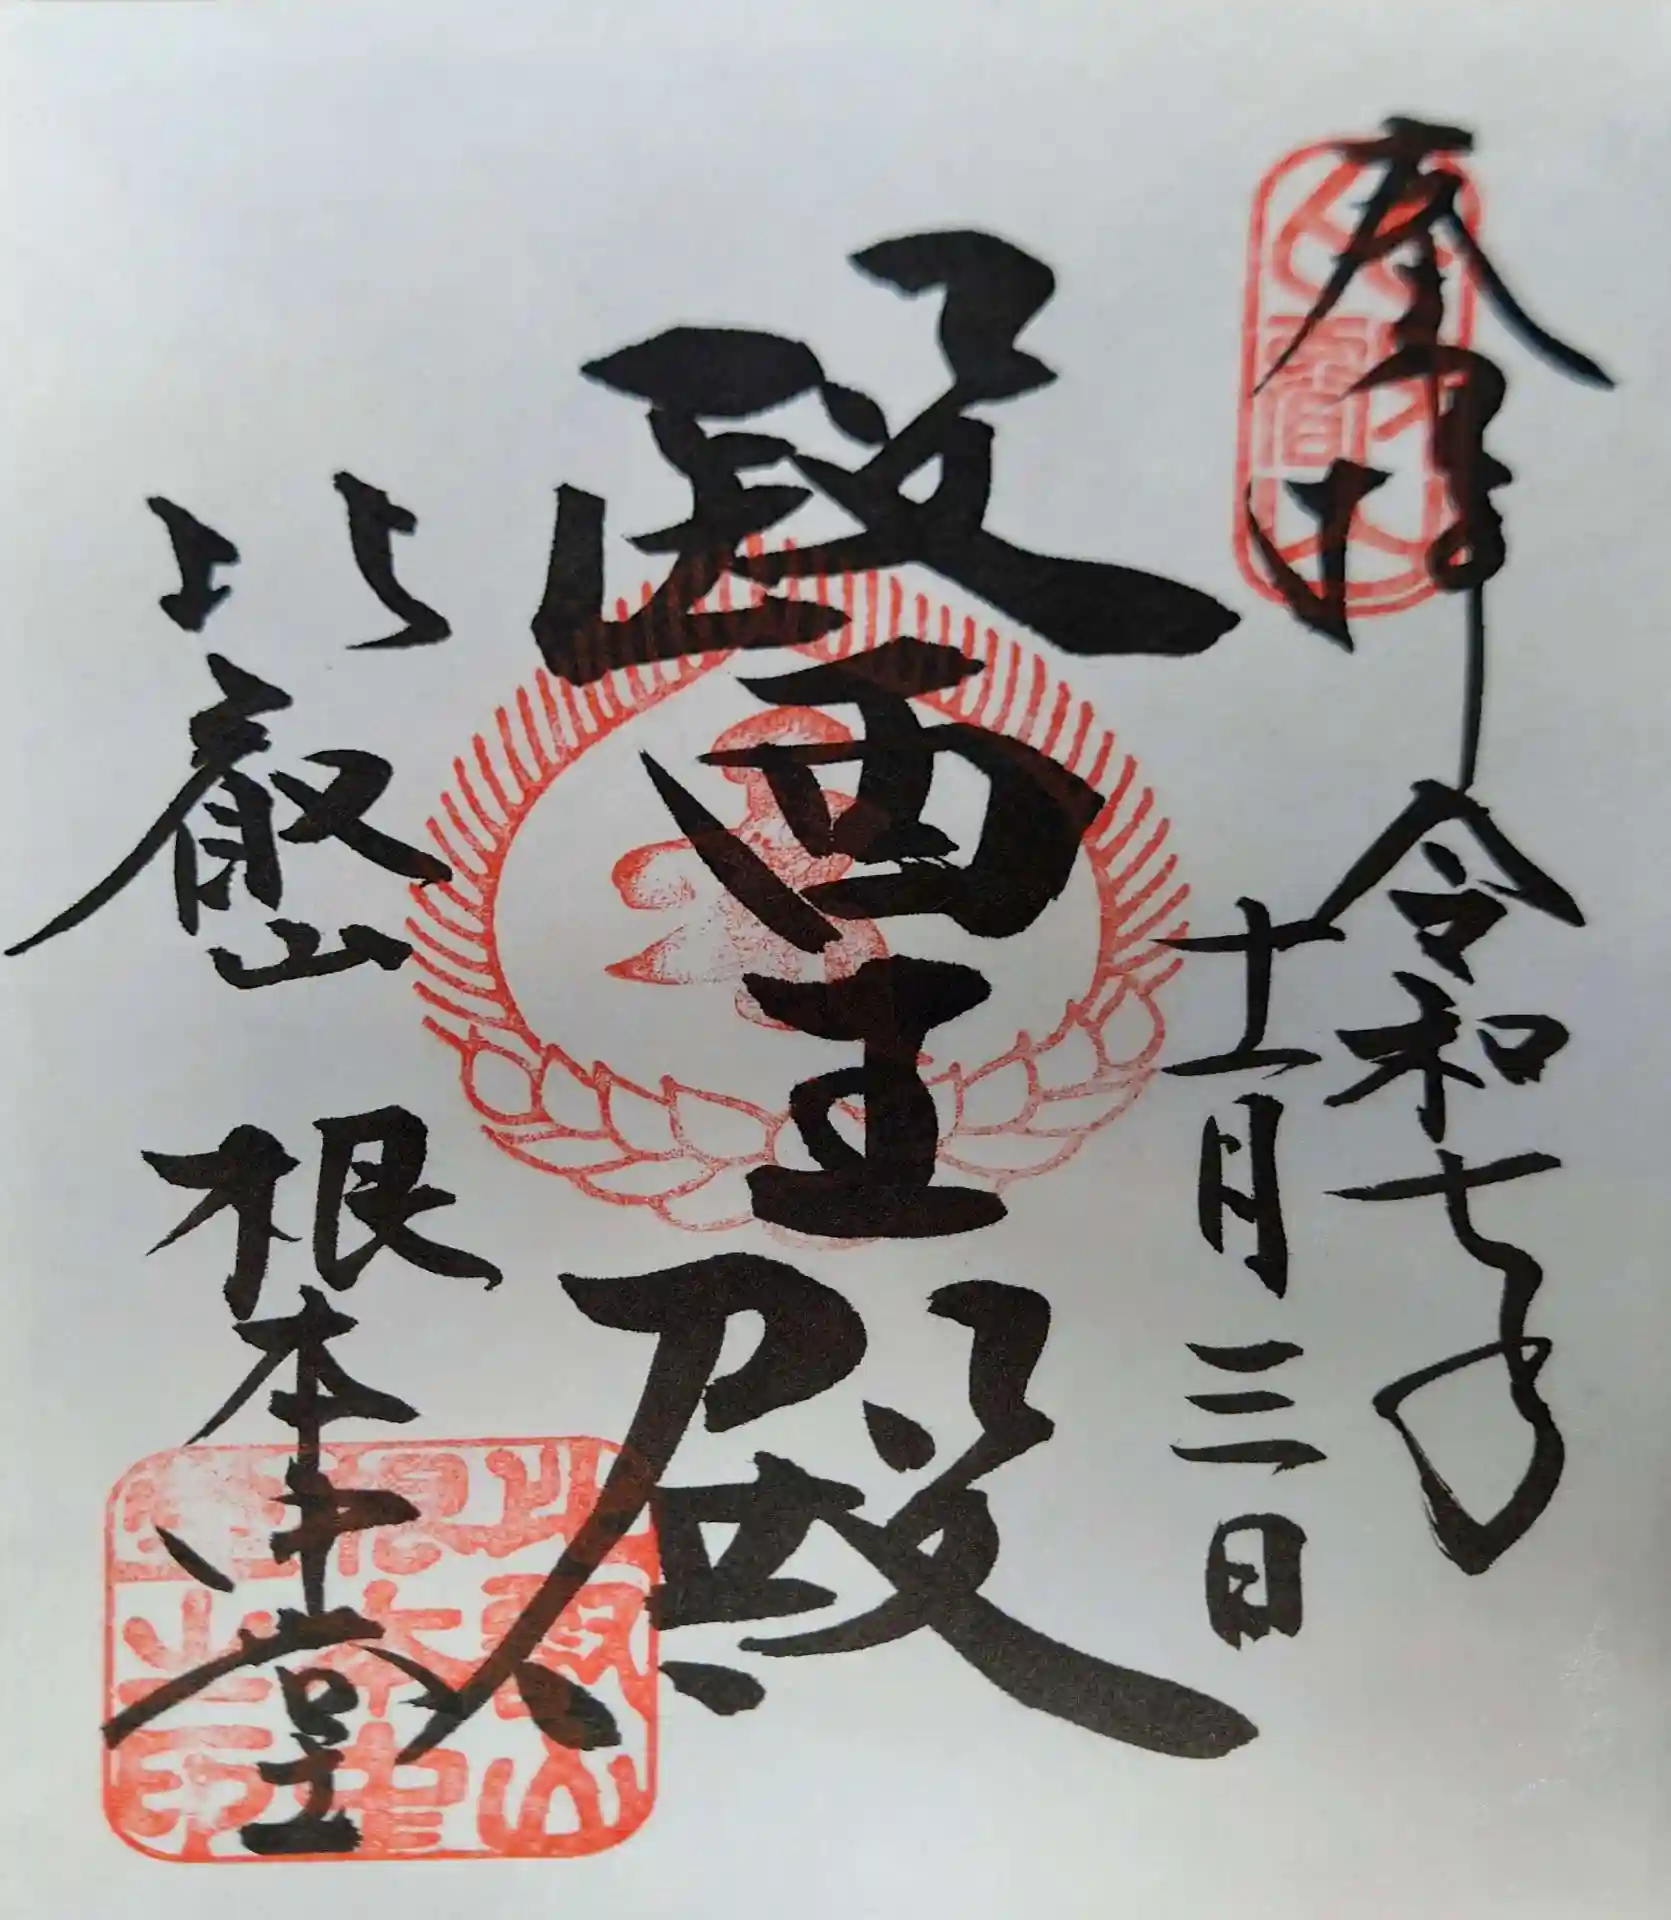 奉拝 令和七年
十一月三日
醫王殿
比叡山 根本中堂